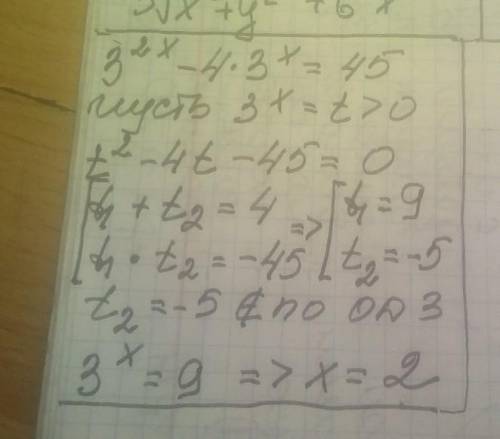 3^{2x} - 4 · 3^x = 45
пусть 3^x = t > 0
t^2 - 4t - 45 = 0
[ t_1 + t_2 = 4 => [ t_1 = 9
[ t_1 · t_2 = -45 [ t_2 = -5
t_2 = -5 ∉ по ОДЗ
3^x = 9 => x = 2